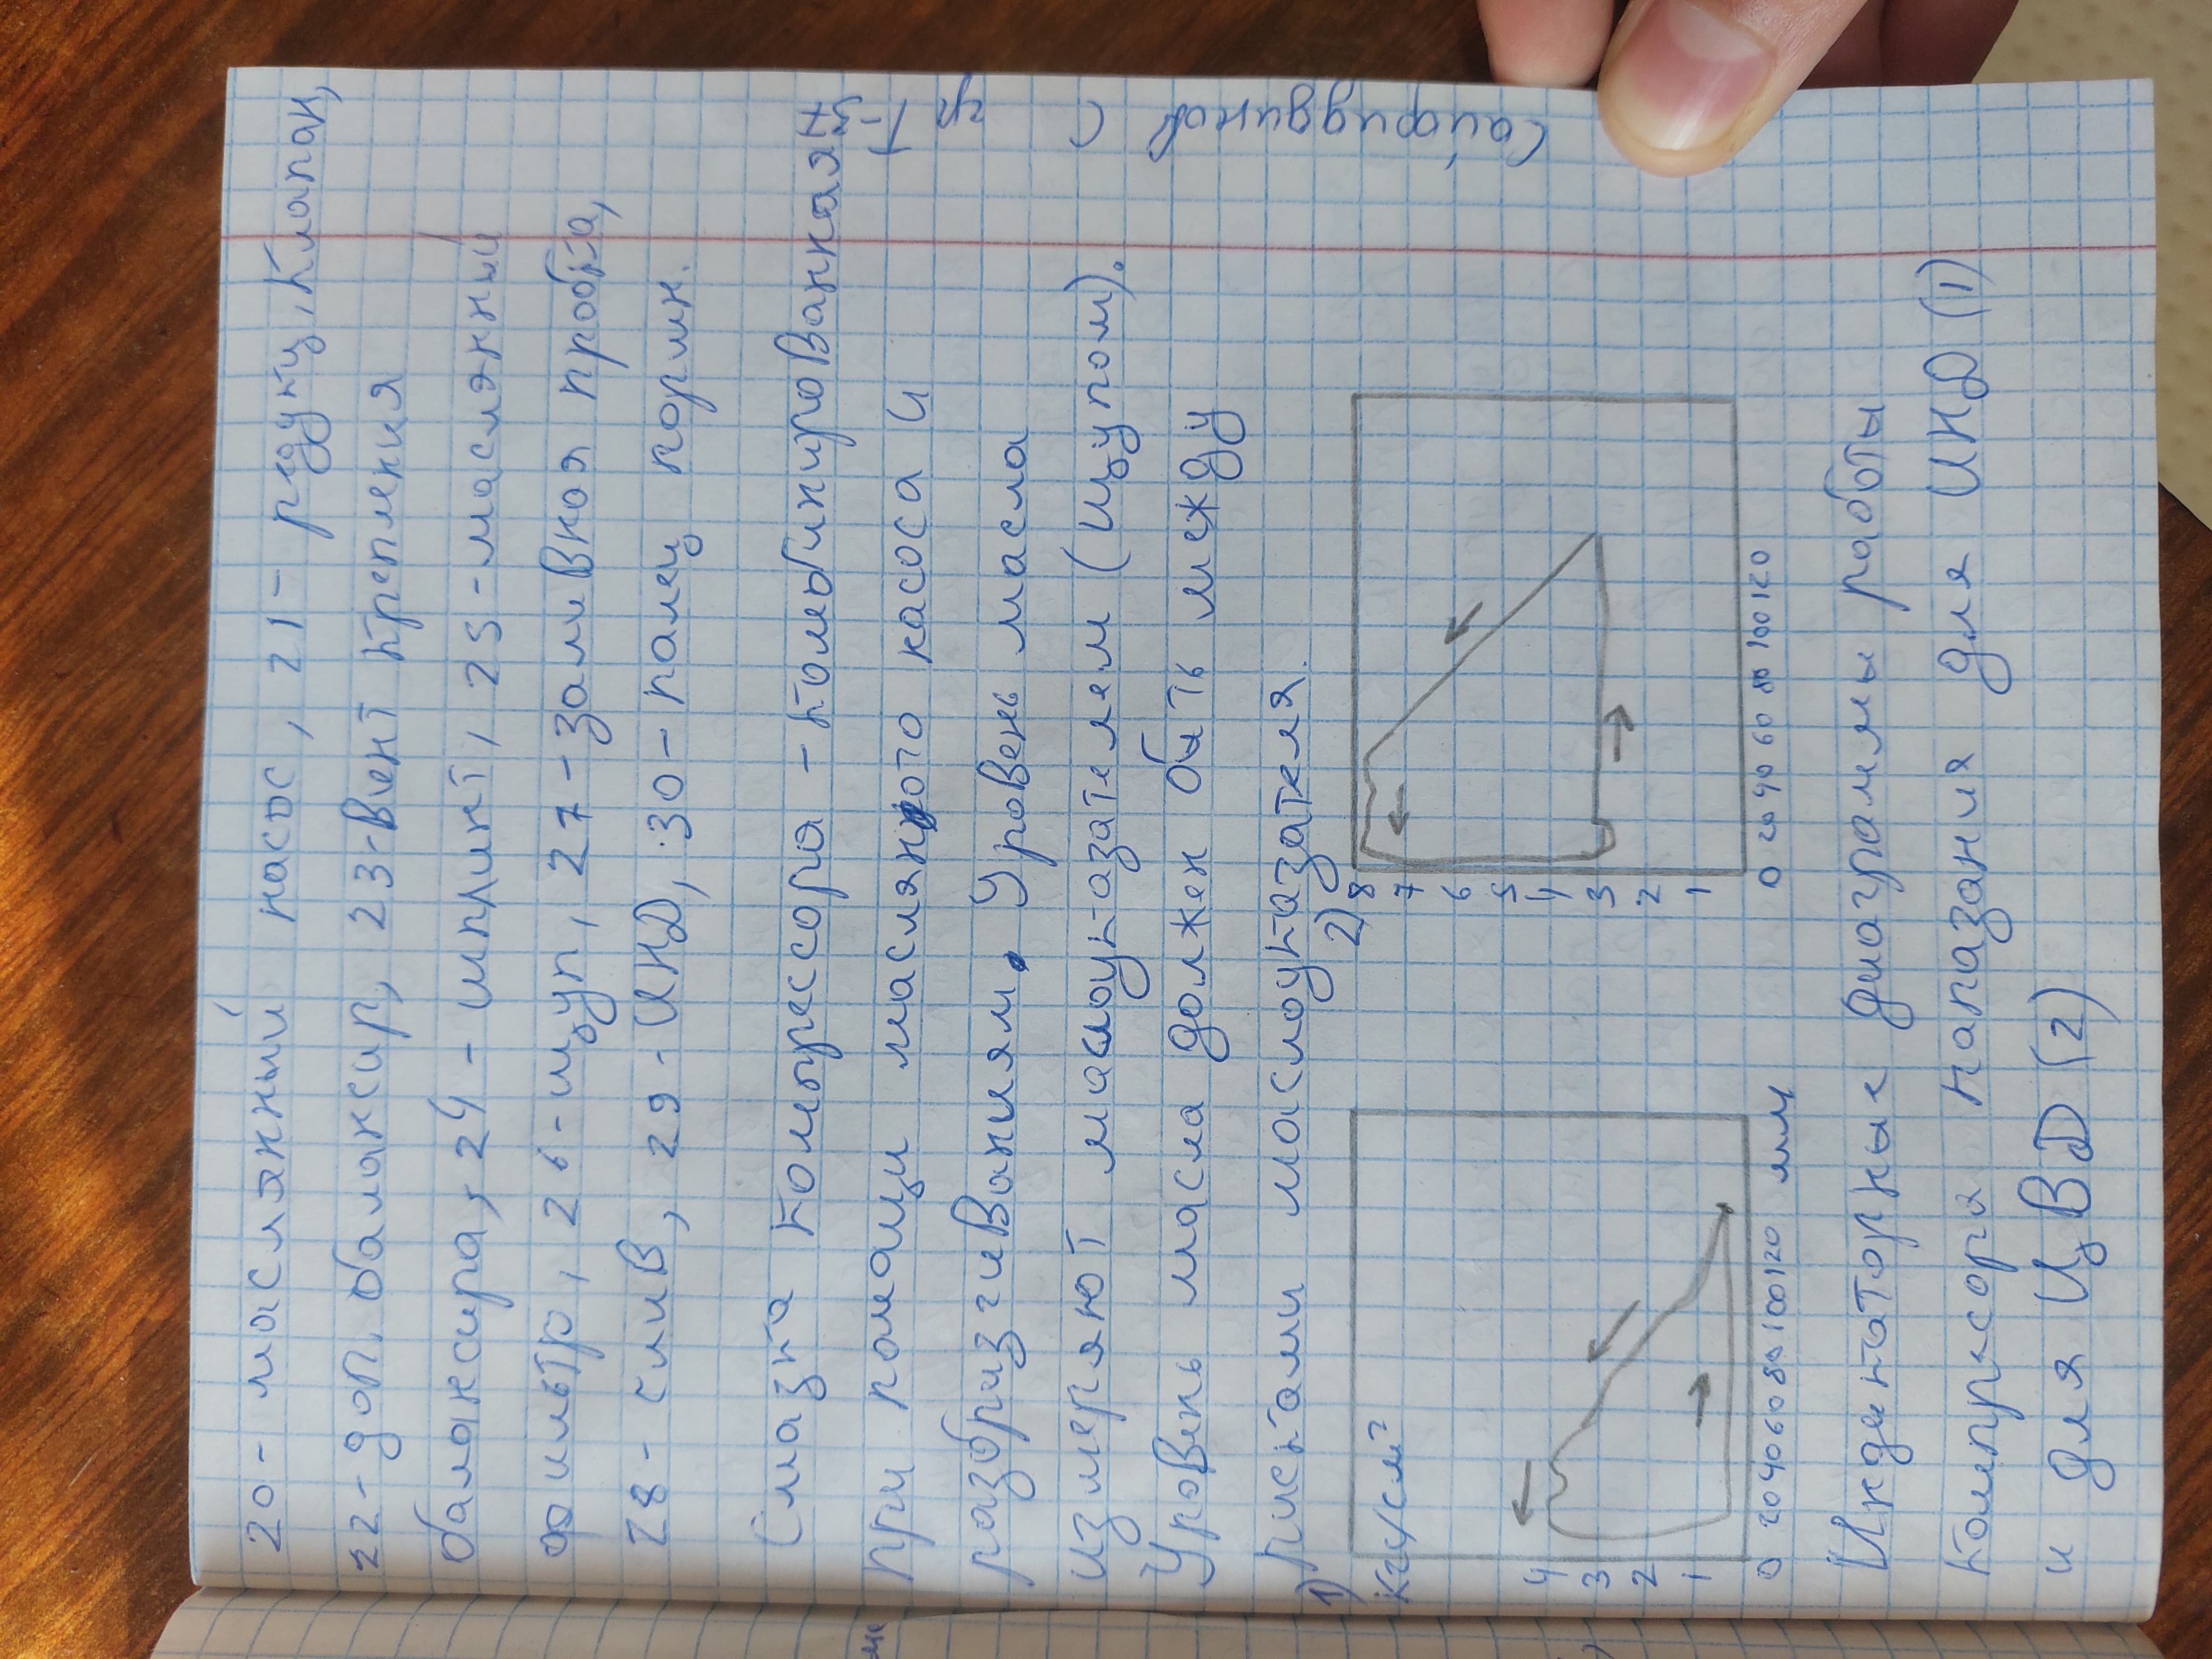 20- масляный насос, 21- редукц. клапан,
22- доп. балансир, 23-винт крепления
балансира, 24- шплинт, 25-масляный
фильтр, 26-щуп, 27-заливная пробка,
28- слив, 29-ЦНД, 30-палец поршн.
Смазка компрессора - комбинированная
При помощи масляного насоса и
разбризгиваниям. Уровень масла
измеряют маслоуказателем (щупом).
Уровень масла должен быть между
рисками маслоуказателя.
1)
кгс/см²
4
3
2
1
0 20 40 60 80 100 120 мм
2)
8
7
6
5
4
3
2
1
0 20 40 60 80 100 120
Индикаторные диаграммы работы
компресора показания для ЦНД (1)
и для ЦВД (2)
Сайфиддинов